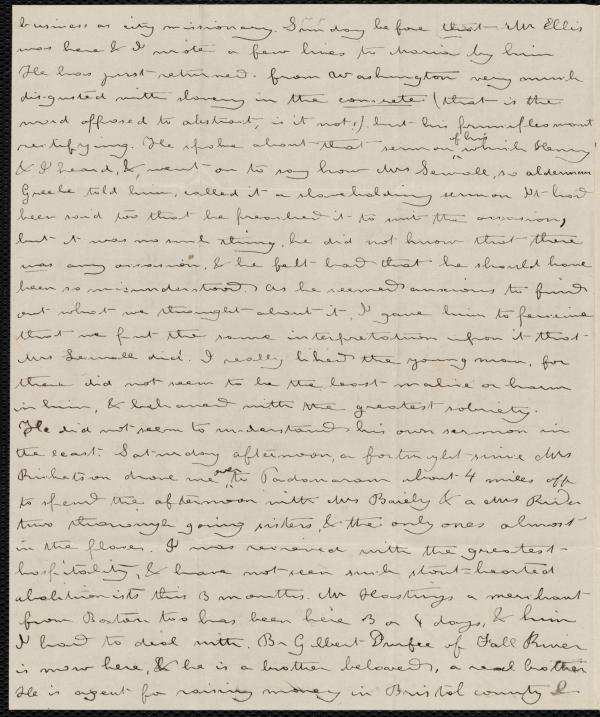 business as city missionary. Sunday before that Mr Ellis
was here & I wrote a few lines to Maria by him
He has just returned from Washington very much
disgusted with slavery in the concrete (that is the
word opposed to abstract, is it not?) but his principles want
rectifying. He spoke about that sermon of his which Henry
& I heard, & went on to say how Mrs Sewall, so alderman
Greele told him, called it a slaveholding sermon It had
been said too that he preached it to suit the occasion,
but it was no such thing, he did not know that there
was any occasion, & he felt bad that he should have
been so misunderstood. As he seemed anxious to find
out what we thought about it, I gave him to perceive
that we put the same interpretation upon it that
Mrs Sewall did. I really liked the young man, for
there did not seem to be the least malice or harm
in him, & behaved with the greatest sobriety.
He did not seem to understand his own sermon in
the least. Saturday afternoon, a fortnight since Mrs
Ricketson drove me over to Padanaram about 4 miles off
to spend the afternoon with Mrs Baiely & a Mrs Rider
two thorough going sisters, & the only ones almost
in the place. I was received with the greatest
hospitality, & have not seen such stout-hearted
abolitionists this 3 months. Mr Hastings a merchant
from Boston too has been here 3 or 4 days, & him
I had to deal with. Br Gilbert Durfee of Fall River
is now here, & he is a brother beloved, a real brother
He is agent for raising money in Bristol county &